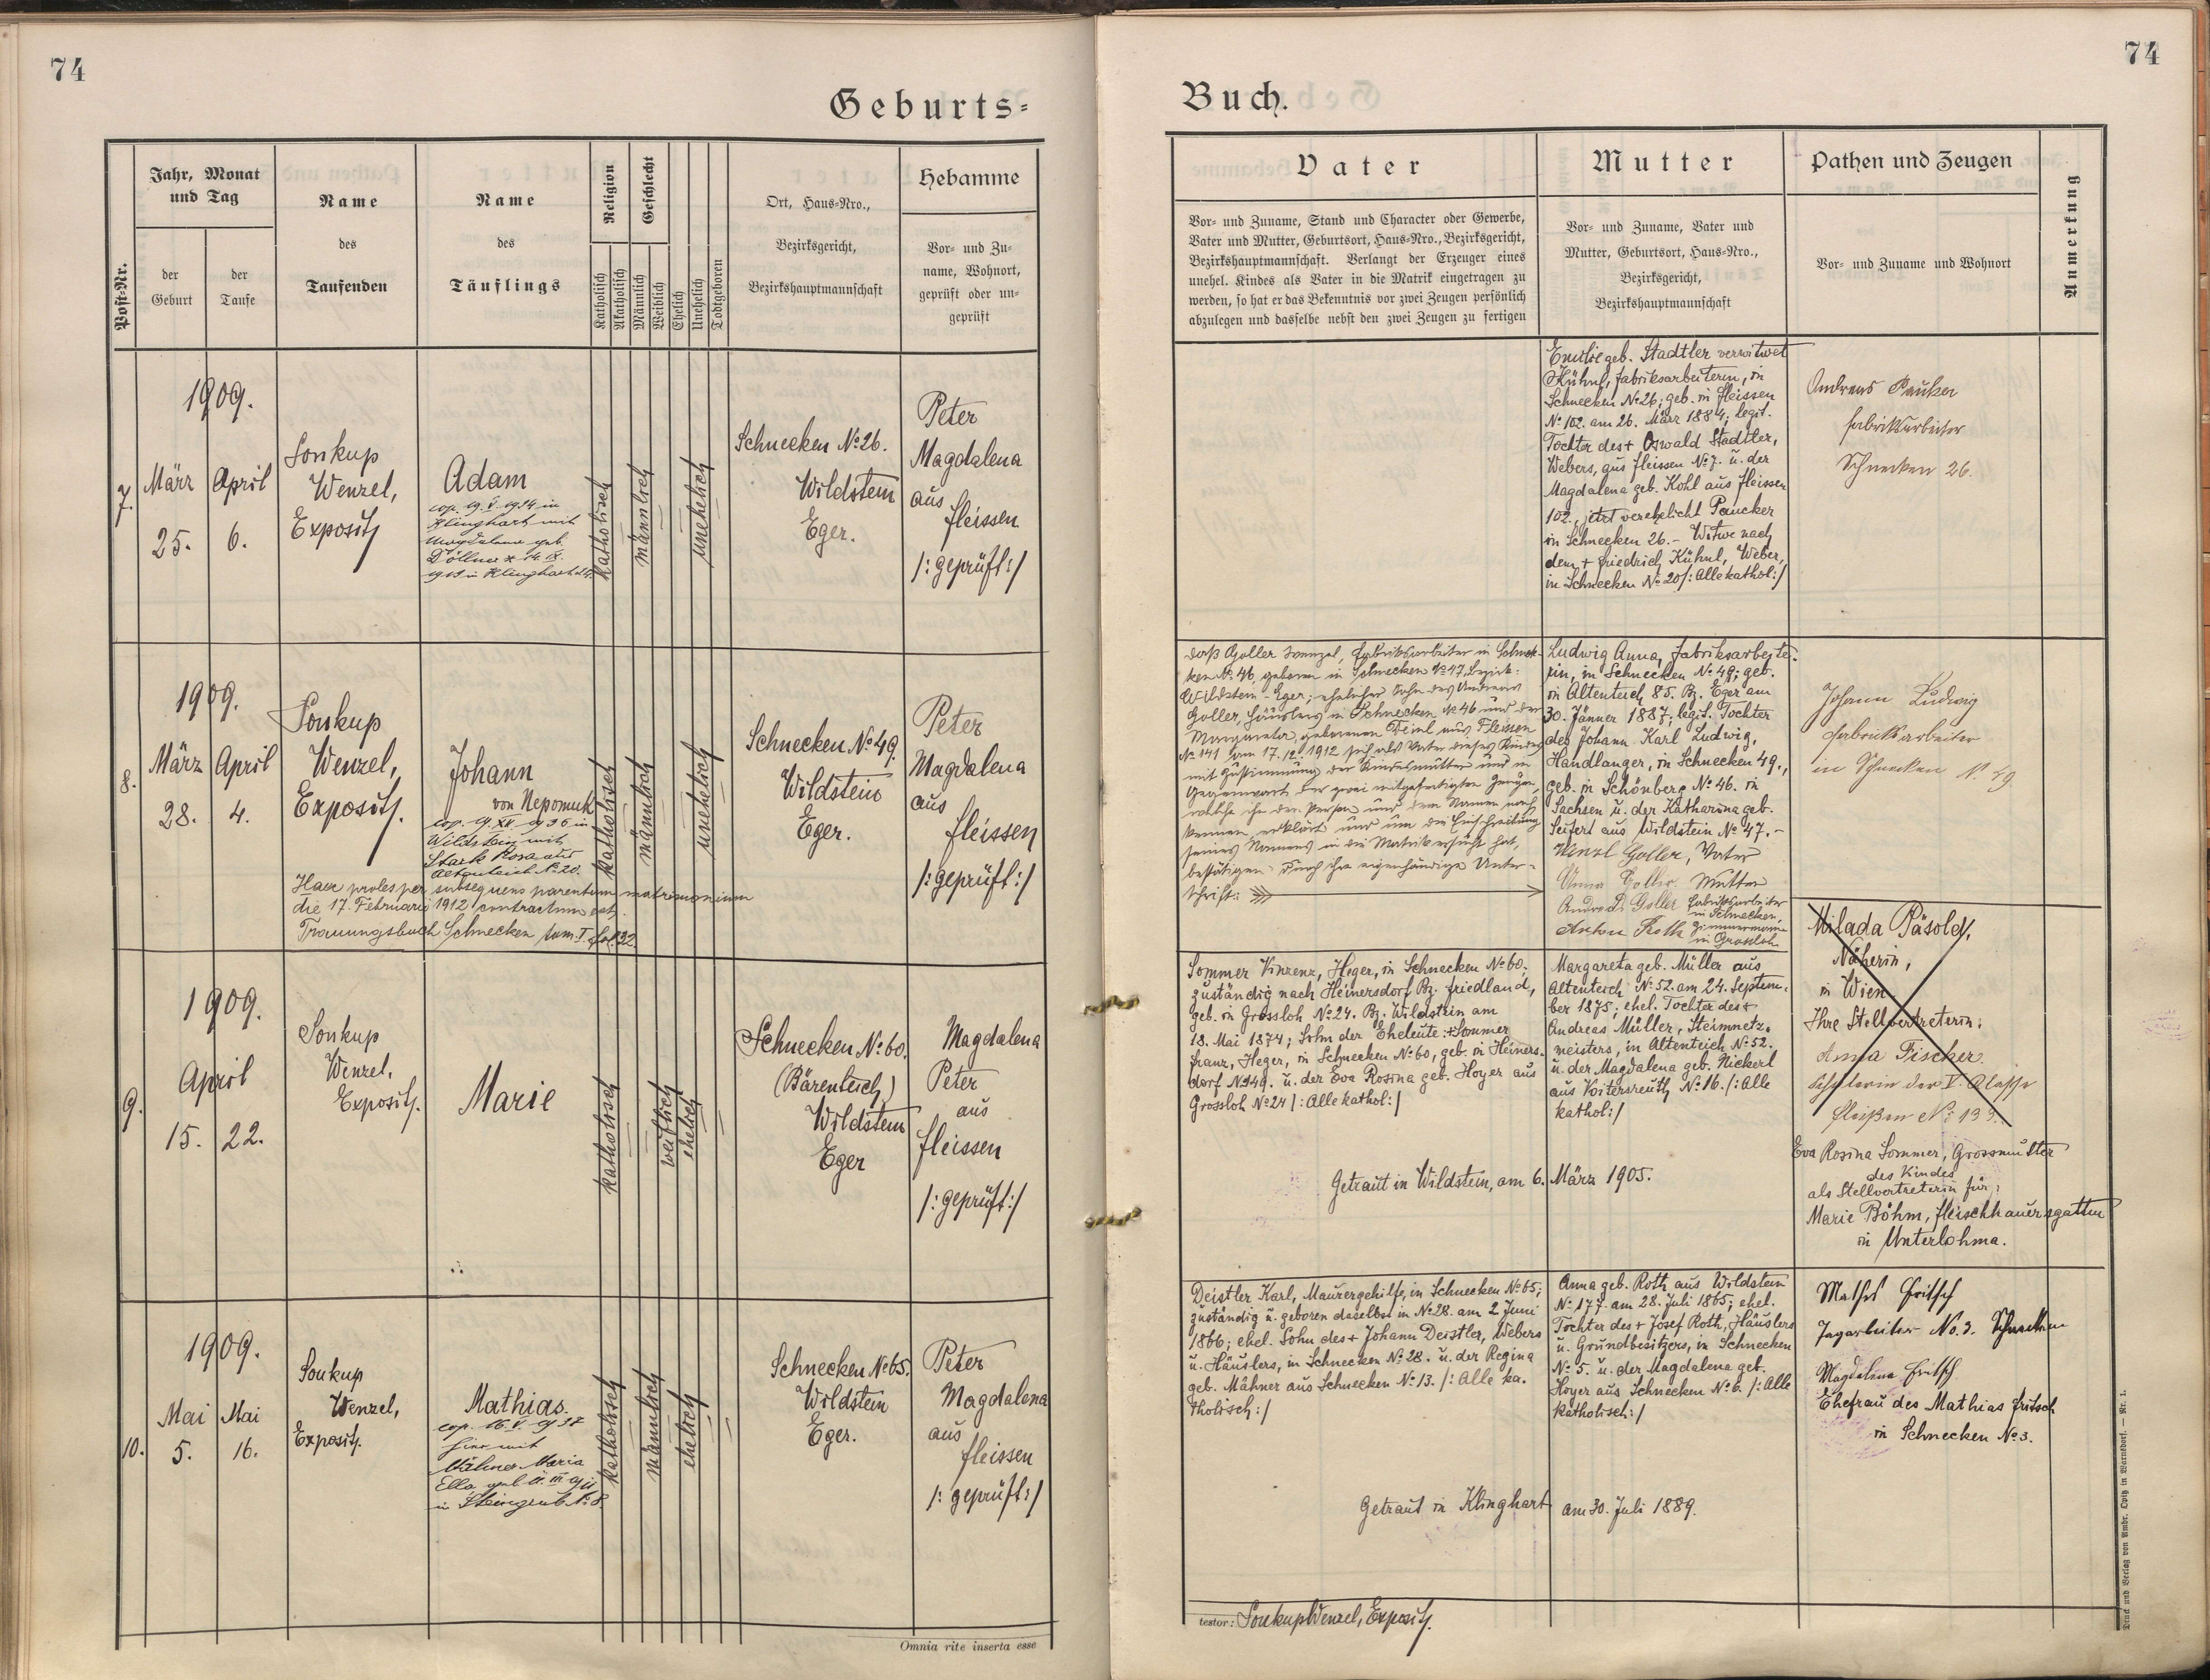 74
Geburts-
Post-Nr.
Jahr, Monat
und Tag
der
Geburt
der
Taufe
Name
des
Taufenden
Name
des
Täuflings
Religion
Katholisch
Akatholisch
Geschlecht
Männlich
Weiblich
Ehelich
Unehelich
Todtgeboren
Ort, Haus-Nro.,
Bezirksgericht,
Bezirkshauptmannschaft
Hebamme
Vor- und Zu-
name, Wohnort,
geprüft oder un-
geprüft
7.
1909.
März
25.
April
6.
Soukup
Wenzel,
Exposit,
Adam
cop. 19. V. 1934 in
Klinghart mit
Magdalena geb.
Döllner * 14. IX.
katholisch
männlich
unehelich
Schnecken No 26.
Wildstein
Eger.
Peter
Magdalena
aus
Fleissen
/: geprüft :/
8.
1909.
März
28.
April
4.
Soukup
Wenzel,
Exposit.
Johann
von Nepomuk
cop. 19. XII. 1936 in
Wildstein mit
Stark Rosa aus
Altenteich No 20.
Haec proles per subsequens parentum matrimonium
die 17. Februarii 1912 contractum est
Trauungsbuch Schnecken tom. I. fol. 32.
katholisch
männlich
unehelich
Schnecken No 49.
Wildstein
Eger.
Peter
Magdalena
aus
Fleissen
/: geprüft :/
9.
1909.
April
15. 22.
Soukup
Wenzel,
Exposit.
Marie
katholisch
weiblich
ehelich
Schnecken No 60.
(Bärenteich)
Wildstein
Eger
Magdalena
Peter
aus
Fleissen
/: geprüft :/
10.
1909.
Mai
5.
Mai
16.
Soukup
Wenzel,
Exposit.
Mathias.
cop. 16. V. 1937
hier mit
Mähner Maria
Ella
in Steingrub No 8.
katholisch
männlich
ehelich
Schnecken No 65.
Wildstein
Eger.
Peter
Magdalena
aus
Fleissen
/: geprüft :/
Omnia rite inserta esse
74
Buch.
Vater
Vor- und Zuname, Stand und Character oder Gewerbe,
Vater und Mutter, Geburtsort, Haus-Nro., Bezirksgericht,
Bezirkshauptmannschaft. Verlangt der Erzeuger eines
unehel. Kindes als Vater in die Matrik eingetragen zu
werden, so hat er das Bekenntnis vor zwei Zeugen persönlich
abzulegen und dasselbe nebst den zwei Zeugen zu fertigen
Mutter
Vor- und Zuname, Vater und
Mutter, Geburtsort, Haus-Nro.,
Bezirksgericht,
Bezirkshauptmannschaft
Pathen und Zeugen
Vor- und Zuname und Wohnort
Anmerkung
Emilie geb. Stadtler verwitwet
Kühnl, Fabriksarbeiterin, in
Schnecken No 26; geb. in Fleissen
No 102. am 26. März 1884; legit.
Tochter des + Oswald Stadtler,
Webers, aus Fleissen No 7. u. der
Magdalena geb. Kohl aus Fleissen
102., jetzt verehelicht Paucker
in Schnecken 26. - Witwe nach
dem + Friedrich Kühnl, Weber,
in Schnecken No 20 /: Alle kathol :/
Andreas Pauker
Fabriksarbeiter
Schnecken 26.
Daß Goller Wenzel, Fabriksarbeiter in Schnek-
ken No 46, geboren in Schnecken No 47, Bezirk:
Wildstein - Eger; ehelicher Sohn des Andreas
Goller, Häuslers in Schnecken No 46 und der
Margareta, geborenen Feiel aus Fleissen
No 141 am 17. 12. 1912 sich als Vater dieses Kindes
mit Zustimmung der Kindesmutter und in
Gegenwart der zwei mitgefertigten Zeugen,
welche ihn der Person und dem Namen nach
kennen, erklärt und um die Einschreibung
seines Namens in die Matrik ersucht hat,
bestätigen durch ihre eigenhändige Unter-
schrift:
Ludwig Anna, Fabriksarbeite-
rin, in Schnecken No 49; geb.
in Altenteich 85. Bz. Eger am
30. Jänner 1887; legit. Tochter
des Johann Karl Ludwig,
Handlanger, in Schnecken 49.,
geb. in Schönberg No 46. in
Sachsen u. der Katharina geb.
Seifert aus Wildstein No 47. -
Wenzl Goller, Vater
Anna Goller Mutter
Andreas Goller Fabriksarbeiter
in Schnecken,
Anton Roth Zimmermann
in Grossloh
Johann Ludwig
Fabriksarbeiter
in Schnecken No 49
Sommer Vinzenz, Heger, in Schnecken No 60;
zuständig nach Heinersdorf Bz. Friedland,
geb. in Grossloh No 24. Bz. Wildstein am
18. Mai 1874; Sohn der Eheleute: + Sommer
Franz, Heger, in Schnecken No 60, geb. in Heiners-
dorf No 149. u. der Eva Rosina geb. Hoyer aus
Grossloh No 24 /: Alle kathol :/
Margareta geb. Müller aus
Altenteich No 52. am 24. Septem-
ber 1875; ehel. Tochter des +
Andreas Müller, Steinmetz-
meisters, in Altenteich No 52.
u. der Magdalena geb. Nickerl
aus Voitersreuth No 16. /: Alle
kathol :/
Getraut in Wildstein, am 6. März 1905.
Milada Päsold,
Näherin,
in Wien
Ihre Stellvertreterin:
Anna Fischer
Schülerin der V. Classe
Fleißen No 133.
Eva Rosina Sommer, Grossmutter
des Kindes
als Stellvertreterin für:
Marie Böhm, Fleischhauersgattin
in Unterlohma.
Deistler Karl, Maurergehilfe, in Schnecken No 65;
zuständig u. geboren daselbst in No 28. am 2. Juni
1866; ehel. Sohn des + Johann Deistler, Webers
u. Häuslers, in Schnecken No 28. u. der Regina
geb. Mähner aus Schnecken No 13. /: Alle ka-
tholisch :/
Anna geb. Roth aus Wildstein
No 177. am 28. Juli 1865; ehel.
Tochter des + Josef Roth, Häuslers
u. Grundbesitzers, in Schnecken
No 5. u. der Magdalena geb.
Hoyer aus Schnecken No 6. /: Alle
katholisch :/
Getraut in Klinghart am 30. Juli 1889.
Mathes Fritsch
Tagarbeiter No. 3. Schnecken
Magdalena Fritsch
Ehefrau des Mathias Fritsch
in Schnecken No 3.
testor: Soukup Wenzel, Exposit.
Druck und Verlag von Ambr. Opitz in Warnsdorf. — Nr. 1.